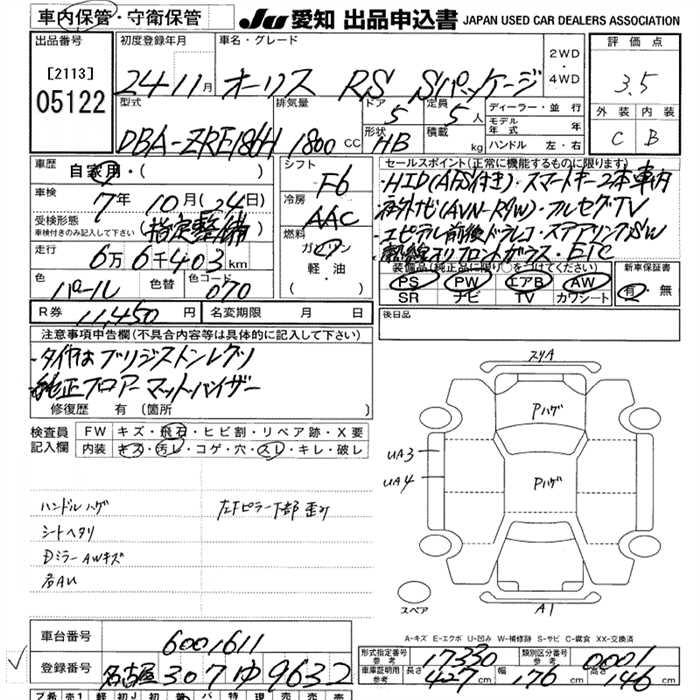 車内保管・守衛保管
JU 愛知 出品申込書 JAPAN USED CAR DEALERS ASSOCIATION
出品番号
[2113]
05122
初度登録年月
24-11月
車名・グレード
オーリス RS Sパッケージ
2WD
・
4WD
評価点
3.5
外装 内装
C B
型式
DBA-ZRE186H
排気量
1800 cc
ドア
5
形状
HB
定員
5人
積載
kg
ディーラー・並行
モデル年式 年
ハンドル 左・右
車歴
自家用・( )
車検
7年 10月(24日)
受検形態
車検付きのみ記入して下さい
(指定整備
走行
6万6千403km
色
パール
色替
色コード
070
シフト
F6
冷房
AAC
燃料
ガソリン
軽油
( )
セールスポイント(正常に機能するものに限ります)
・HID(AFS付き)・スマートキー2本車内
・社外ナビ(AVN-R8W)・フルセグTV
・エピテル前後ドラレコ・ステアリングSW
・熱線入りフロントガラス・ETC
装備品(純正品に限り)をつけてください
PS PW エアB AW
SR ナビ TV カワシート
新車保証書
有・無
R券 11,450円
名変期限 月 日
後日品
注意事項申告欄(不具合内容等は具体的に記入して下さい)
・タイヤはブリジストンレグノ
・純正フロアーマットバイザー
修復歴 有 (箇所 )
検査員
記入欄
FW キズ・飛石・ヒビ割・リペア跡・X要
内装 キズ・汚レ・コゲ・穴・スレ・キレ・破レ
ハンドルハゲ
シートヘタリ
DミラーAWキズ
左Fピラー下部歪み
スリA
Pハゲ
UA3
UA4
Pハゲ
スペア
A1
A-キズ E-エクボ U-凹み W-補修跡 S-サビ C-腐食 XX-交換済
車台番号
6001611
登録番号
名古屋 307 ゆ 9632
形式指定番号
参考
17330
類別区分番号
参考
0001
車庫証明用
参考
長さ 427cm 幅 176cm 高さ 146cm